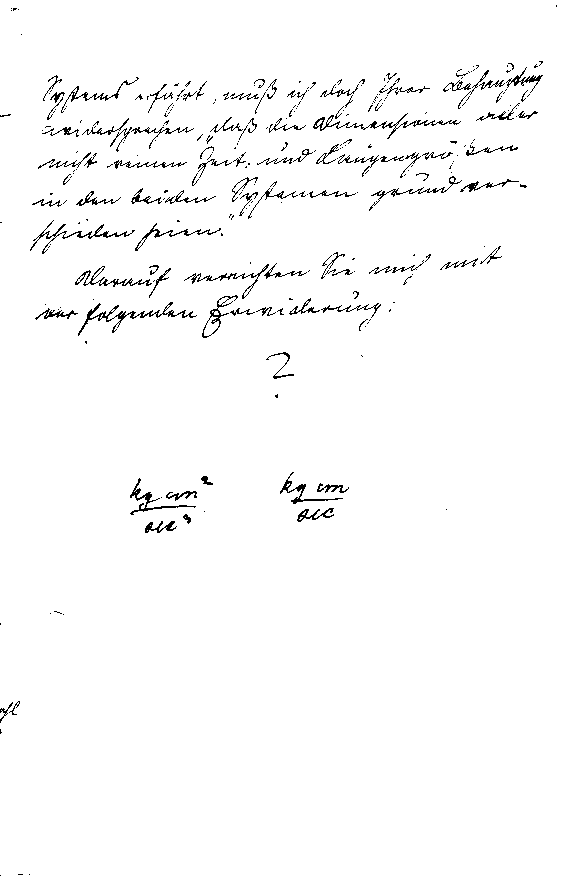 Systems erfährt, muß ich doch Ihrer Behauptung
widersprechen, „daß die Dimensionen aller
nicht reinen Zeit- und Längengrößen
in den beiden Systemen grund ver-
schieden seien.“
Darauf verrichten Sie mich mit
der folgenden Erwiderung:
?
kg cm² kg cm
sec³ sec